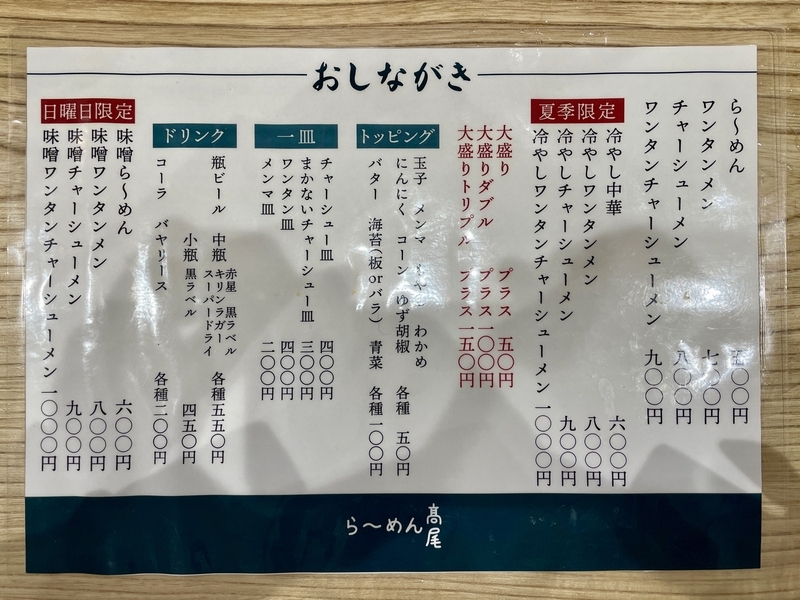 おしながき
ら〜めん 五〇〇円
ワンタンメン 七〇〇円
チャーシューメン 八〇〇円
ワンタンチャーシューメン 九〇〇円
夏季限定
冷やし中華 六〇〇円
冷やしワンタンメン 八〇〇円
冷やしチャーシューメン 九〇〇円
冷やしワンタンチャーシューメン 一〇〇〇円
大盛り プラス 五〇円
大盛りダブル プラス一〇〇円
大盛りトリプル プラス一五〇円
トッピング
玉子 メンマ わかめ
にんにく コーン ゆず胡椒 各種 五〇円
バター 海苔(板orバラ) 青菜 各種一〇〇円
一皿
チャーシュー皿 四〇〇円
まかないチャーシュー皿 三〇〇円
ワンタン皿 四〇〇円
メンマ皿 二〇〇円
ドリンク
瓶ビール 中瓶 赤星 黒ラベル
キリンラガー
スーパードライ 各種五五〇円
小瓶 黒ラベル 四五〇円
コーラ バヤリース 各種二〇〇円
日曜日限定
味噌ら〜めん 六〇〇円
味噌ワンタンメン 八〇〇円
味噌チャーシューメン 九〇〇円
味噌ワンタンチャーシューメン 一〇〇〇円
ら〜めん高尾